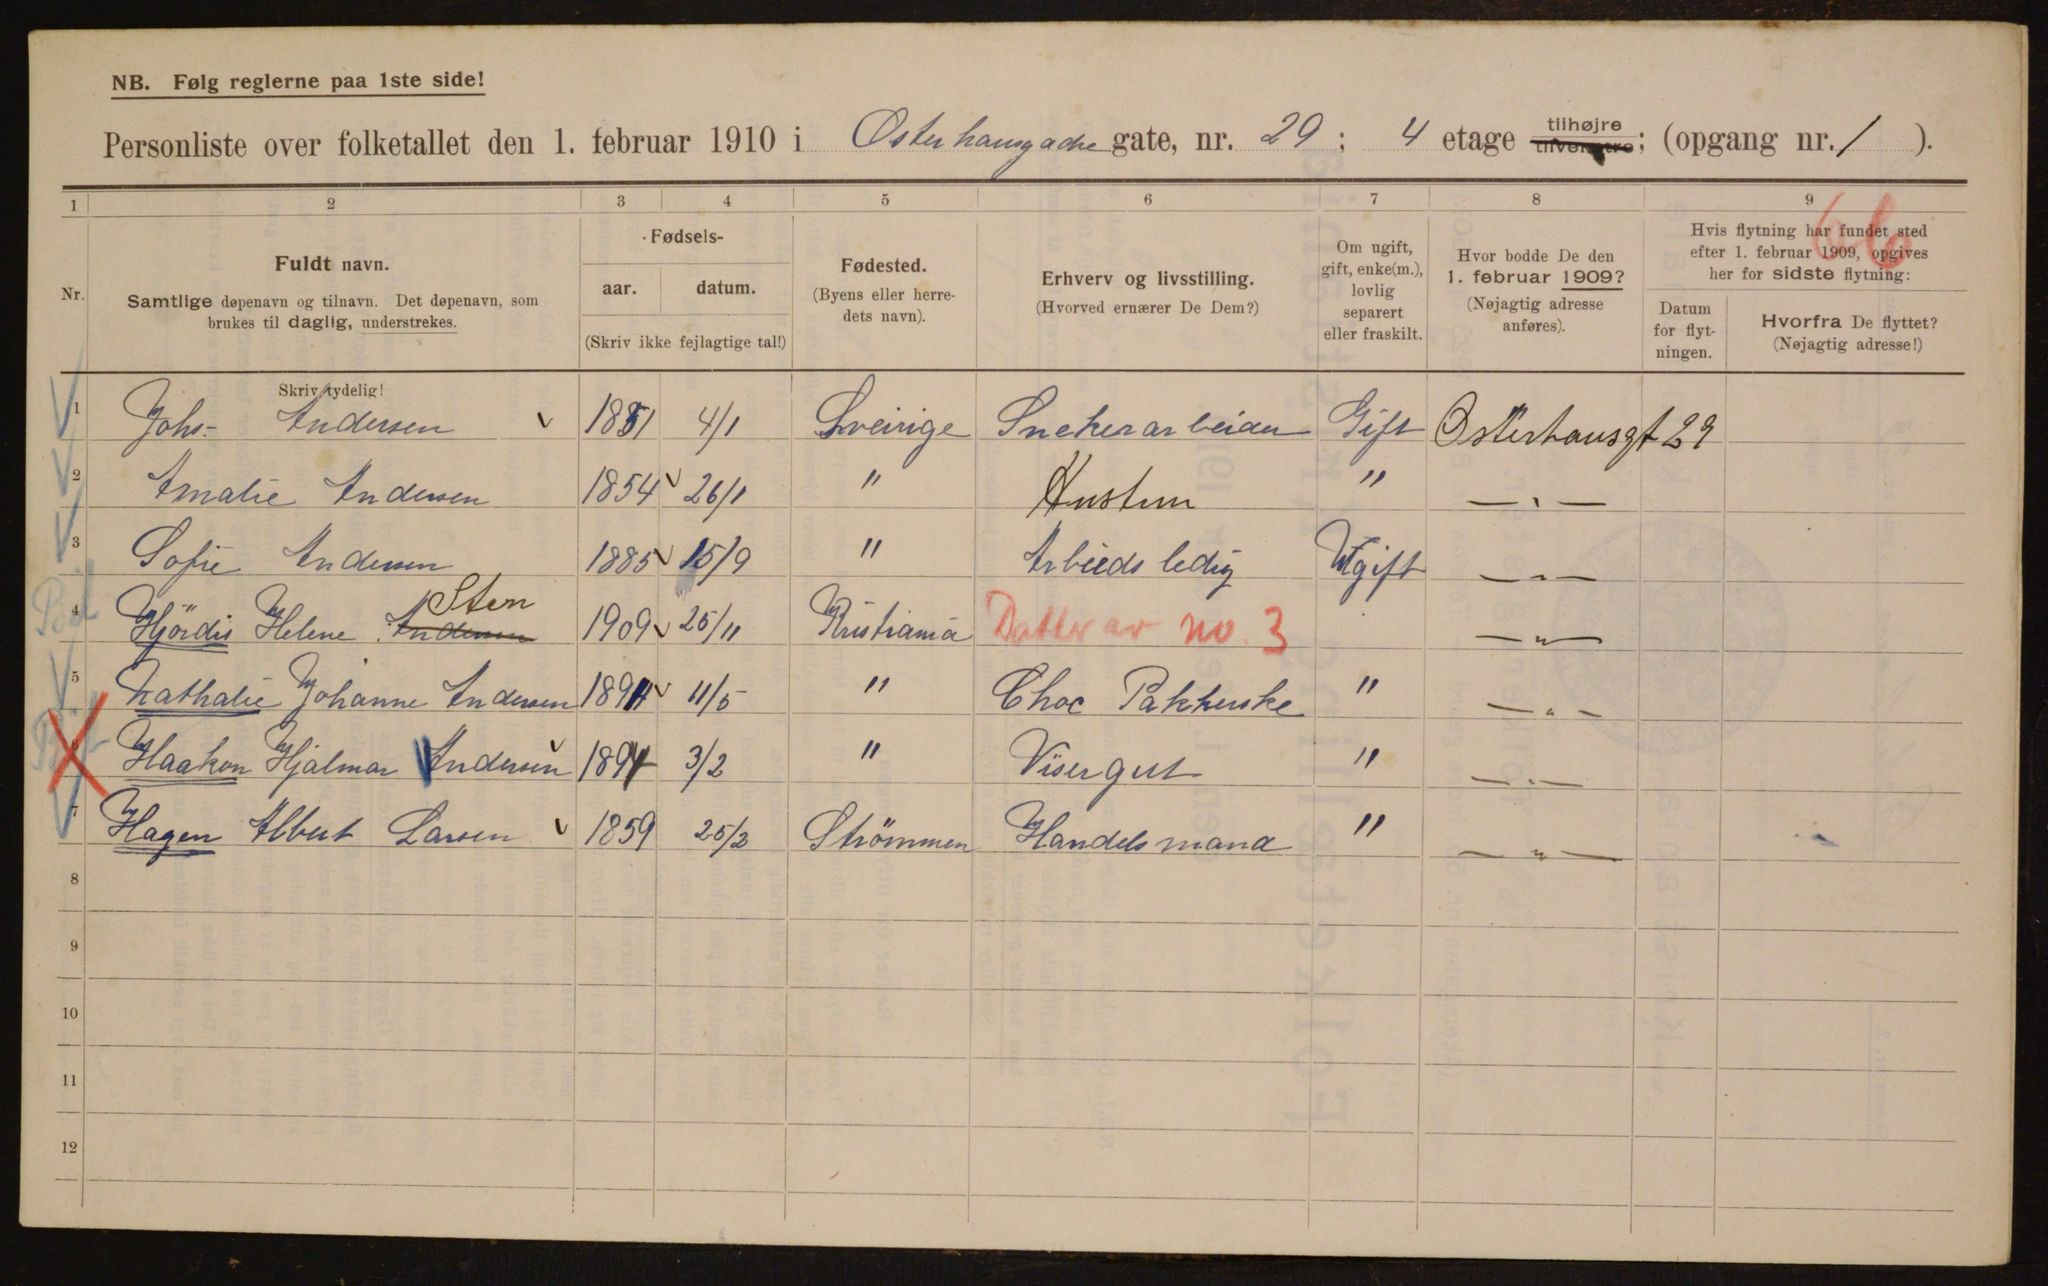 NB. Følg reglerne paa 1ste side!
Personliste over folketallet den 1. februar 1910 i Osterhausgade gate, nr. 29 ; 4 etage tilhøjre tilvenstre; (opgang nr. 1 ).
1 2 3 4 5 6 7 8 9
Nr.
Fuldt navn.
Samtlige døpenavn og tilnavn. Det døpenavn, som
brukes til daglig, understrekes.
Fødsels-
aar. datum.
(Skriv ikke fejlagtige tal!)
Fødested.
(Byens eller herre-
dets navn).
Erhverv og livsstilling.
(Hvorved ernærer De Dem?)
Om ugift,
gift, enke(m.),
lovlig
separert
eller fraskilt.
Hvor bodde De den
1. februar 1909?
(Nøjagtig adresse
anføres).
Hvis flytning har fundet sted
efter 1. februar 1909, opgives
her for sidste flytning:
Datum
for flyt-
ningen.
Hvorfra De flyttet?
(Nøjagtig adresse!)
Skriv tydelig!
1 Johs. Andersen 1851 4/1 Sveirige Snekerarbeider Gift Osterhausgt 29
2 Amalie Andersen 1854 26/1 " Hustru " — " —
3 Sofie Andersen 1885 15/9 " Arbieds ledig Ugift — " —
4 Hjördis Helene Andersen Sten 1909 25/11 Kristiania Datter av no. 3 — " —
5 Nathalie Johanne Andersen 11/5 " Choc Pakkerske " — " —
6 Haakon Hjalmar Andersen 3/2 " Visergut " — " —
7 Hagen Albert Larsen 1859 25/2 Strömmen Handelsmand " — " —
8
9
10
11
12